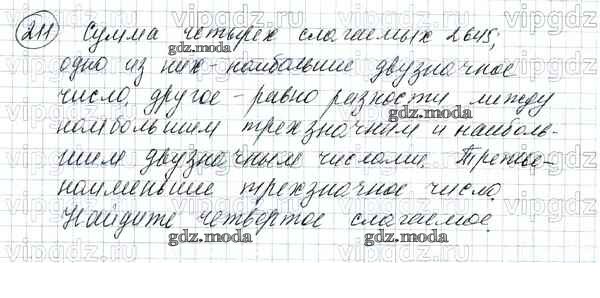 211 Сумма четырех слагаемых 2645;
одно из них - наибольшее двузначное
число, другое - равно разности между
наибольшим трехзначным и наиболь-
шим двузначным числами. Третье-
наименьшее трехзначное число.
Найдите четвертое слагаемое.
gdz.moda
gdz.moda
gdz.moda
gdz.moda
gdz.moda
vipgdz